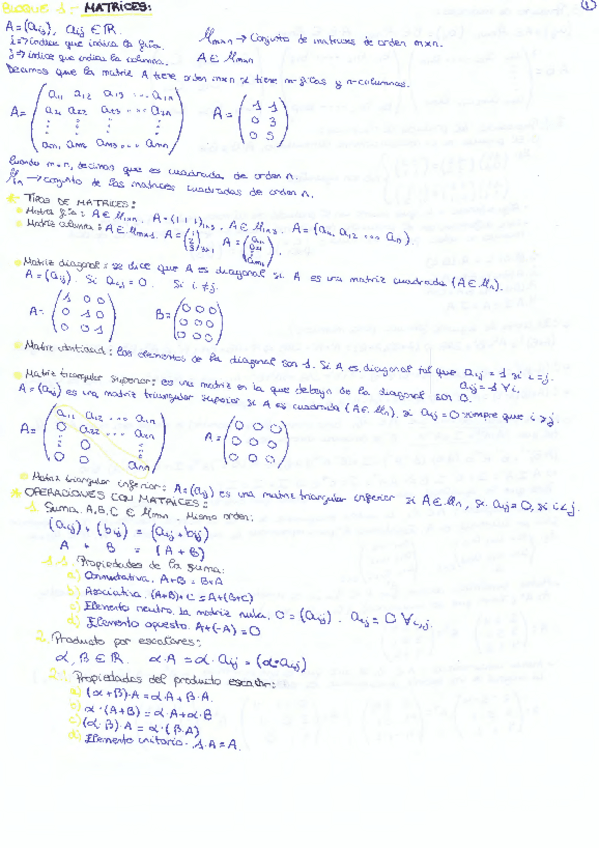 BLOQUE 1.- MATRICES: 1
A=(aij), aij ∈ ℝ.
i→índice que indica la fila. Mmxn → Conjunto de matrices de orden mxn.
j→índice que indica la columna. A ∈ Mmxn
Decimos que la matriz A tiene orden mxn si tiene m-filas y n-columnas.
a11 a12 a13 ... a1n
a21 a22 a23 ... a2n
A= A=
am1 am2 am3 ... amn
1 1
0 3
0 5
Cuando m=n, decimos que es cuadrada de orden n.
Mn → conjunto de las matrices cuadradas de orden n.
* TIPOS DE MATRICES:
Matriz fila: A ∈ M1xn. A=(1 1 1)1x3, A ∈ M1x3. A=(a11 a12 ... an).
Matriz columna: A ∈ Mmx1. A= (1 2 3)3x1 A= (a11 a21 ⋮ am1).
Matriz diagonal: se dice que A es diagonal si A es una matriz cuadrada (A ∈ Mn).
A=(aij). Si aij=0. Si i≠j.
A= B=
1 0 0
0 1 0
0 0 1
0 0 0
0 0 0
0 0 0
Matriz identidad: los elementos de la diagonal son 1. Si A es diagonal tal que aij=1 si i=j.
aij=1 ∀i,
Matriz triangular superior: es una matriz en la que debajo de la diagonal son 0.
A=(aij) es una matriz triangular superior si A es cuadrada (A ∈ Mn), si aij=0 siempre que i>j.
a11 a12 ... a1n
0 a22 ... a2n
A= A=
⋮ 0
0 0 ann
0 0 0
0 0 0
0 0 0
Matriz triangular inferior: A=(aij) es una matriz triangular inferior si A ∈ Mn, si aij=0, si i<j.
* OPERACIONES CON MATRICES:
1. Suma. A,B,C ∈ Mmxn. Mismo orden:
(aij)+(bij) = (aij+bij)
A + B = (A+B)
1.1. Propiedades de la suma:
a) Conmutativa. A+B=B+A
b) Asociativa. (A+B)+C=A+(B+C)
c) Elemento neutro. La matriz nula, 0=(aij). aij=0 ∀i,j.
d) Elemento opuesto. A+(-A)=0
2. Producto por escalares:
α, β ∈ ℝ. α·A=α·aij=(α·aij)
2.1. Propiedades del producto escalar:
a) (α+β)·A=α·A+β·A.
b) α·(A+B)=α·A+α·B
c) (α·β)·A=α·(β·A)
d) Elemento unitario. 1·A=A.